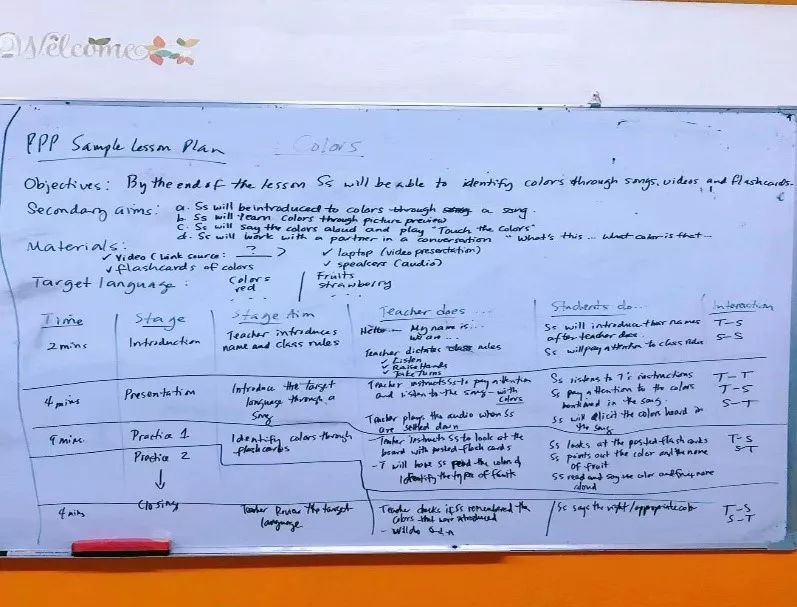 Welcome
PPP Sample Lesson Plan
Colors
Objectives: By the end of the lesson Ss will be able to identify colors through songs, videos and flashcards.
Secondary aims: a. Ss will be introduced to colors through song a song.
b. Ss will learn colors through picture preview
c. Ss will say the colors aloud and play "Touch the colors"
d. Ss will work with a partner in a conversation "What's this ... what color is that ...
Materials:
✓ video (Link source: ? > ✓ laptop (video presentation)
✓ flashcards of colors ✓ speakers (audio)
Target language: Colors Fruits
red strawberry
. . . . . .
Time Stage Stage Aim Teacher does ... Students do... Interaction
2 mins Introduction Teacher introduces name and class rules
Hello... My name is...
Teacher dictates class rules
✓ Listen
✓ Raise Hands
✓ Take Turns
Ss will introduce their names
after teacher does
Ss will pay attention to class rules
T-S
S-S
4 mins Presentation Introduce the target
language through a
song
Teacher instructs Ss to pay attention
and listen to the song with
colors
Teacher plays the audio when Ss
are settled down
Ss listens to T's instructions
Ss pay attention to the colors
mentioned in the song.
Ss will elicit the colors heard in
the song
T-T
T-S
S-T
Practice 1 Identify colors through
flashcards
Practice 2
- Teacher instructs Ss to look at the
board with posted flash cards
- T will have Ss read the colors &
Identify the type of fruits
Ss looks at the posted flash cards
Ss points out the color and the name
of fruit
Ss read and say the color and name
aloud
T-S
S-T
4 mins Closing Teacher Review the target
language
Teacher checks if Ss remembered the
colors that were introduced
Ss says the right/appropriate color
T-S
S-T